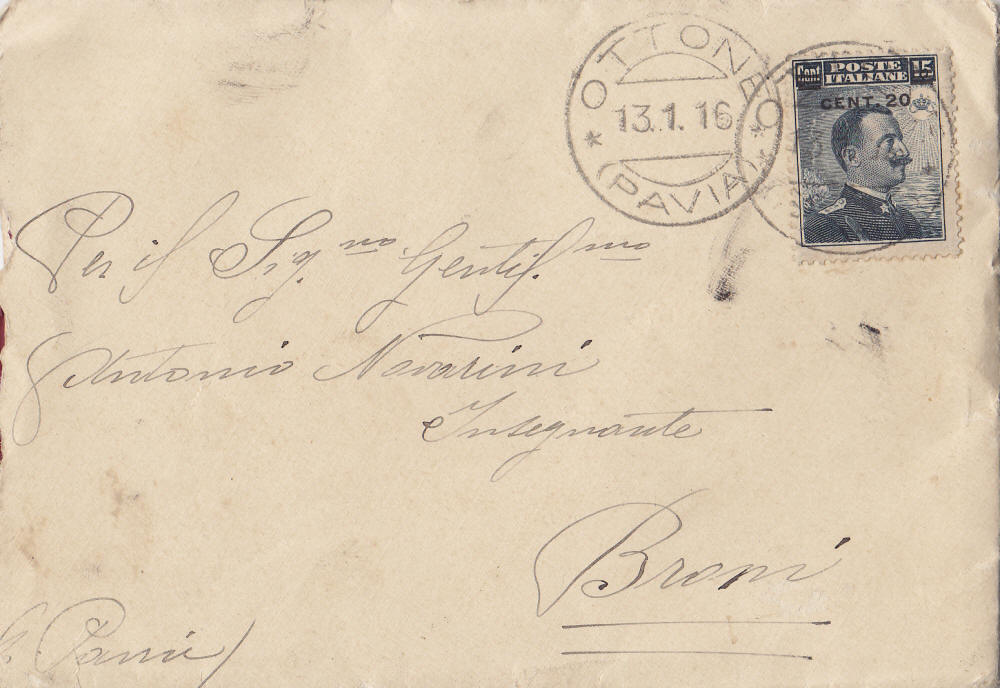 OTTONE
13.1.16
(PAVIA)
Cent POSTE ITALIANE 15
CENT. 20
Per il Sig.no Gentil.mo
Antonio Navarini
Insegnante
Broni
Pavia)